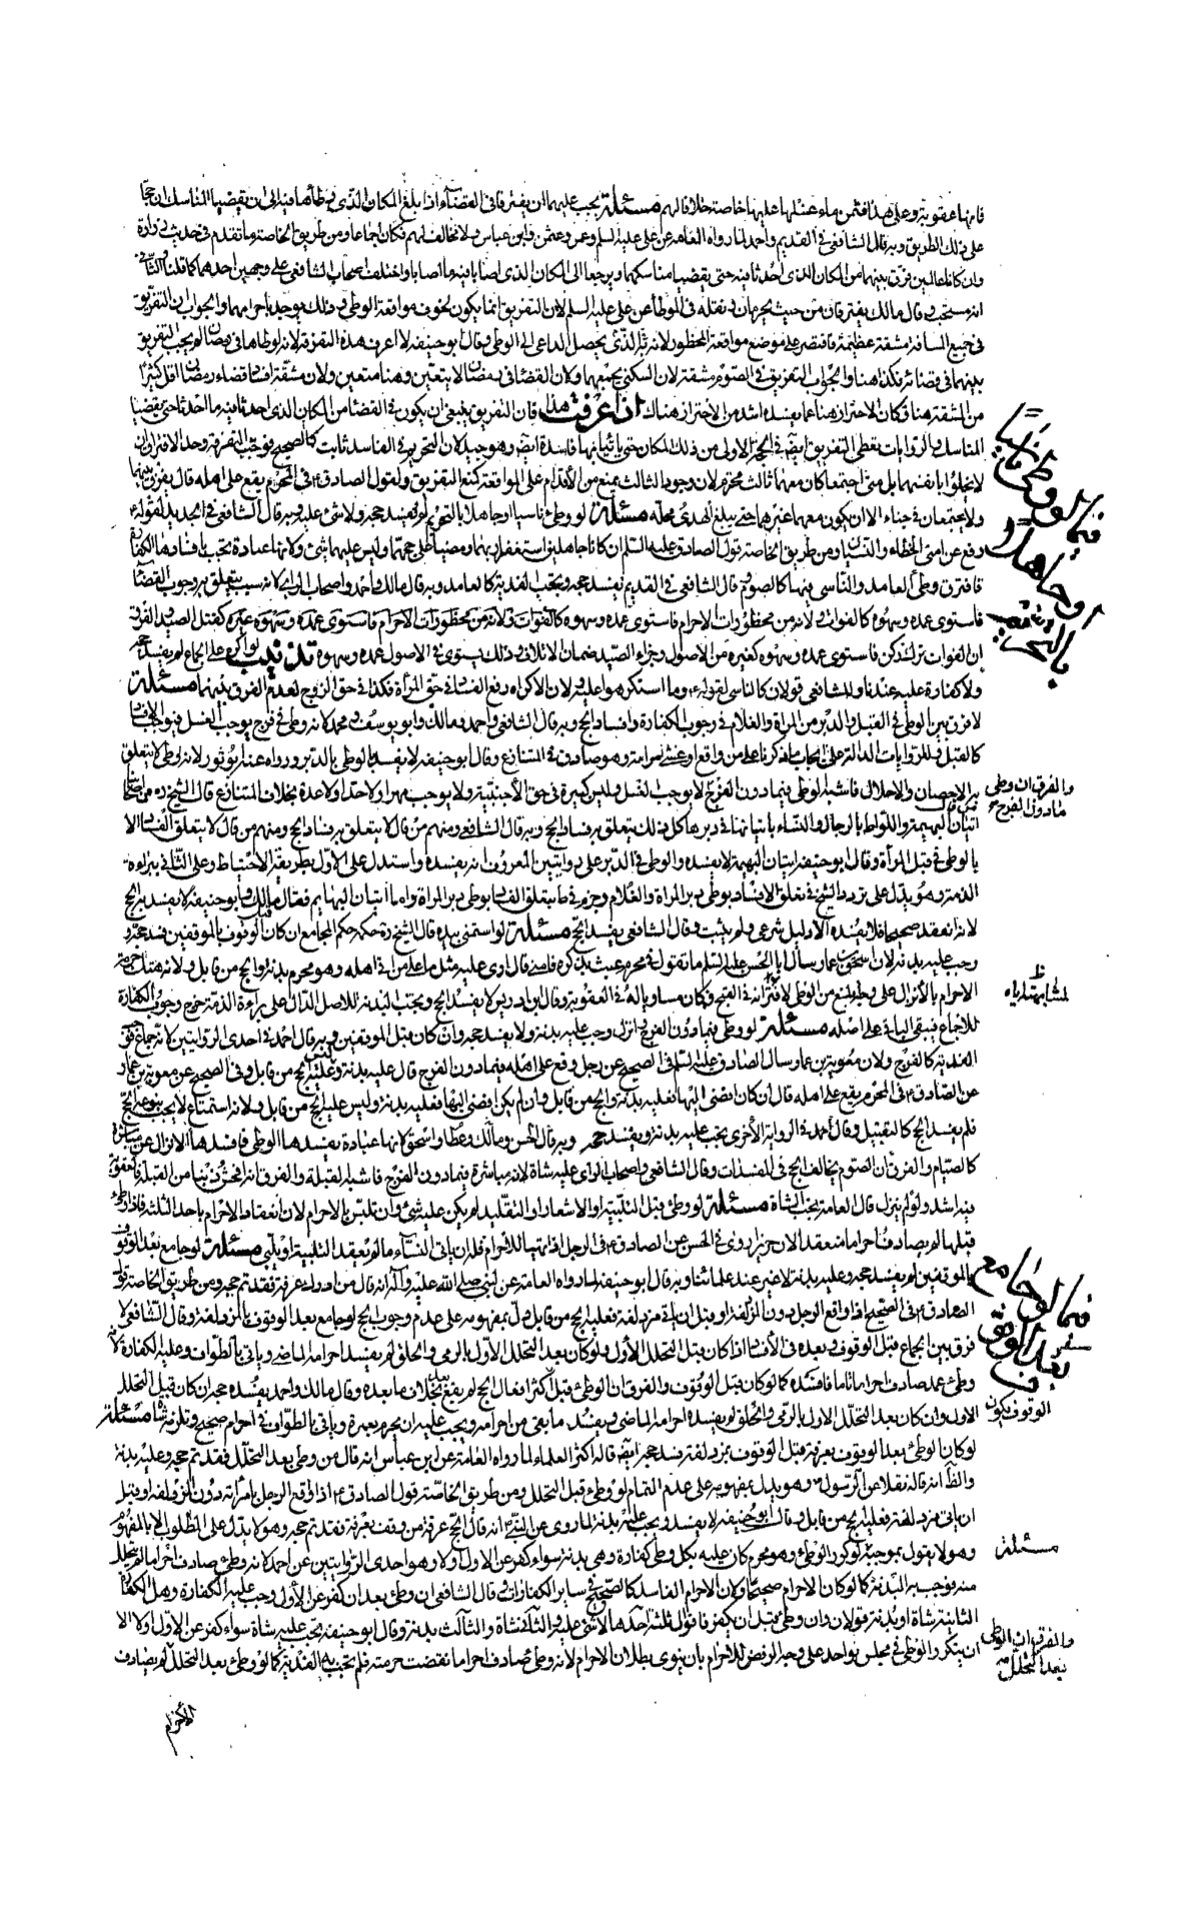 فانها عقوبة وعلى هذا فثمن ماء غسلها عليها خاصة خلافا لهم مسئلة يجب عليهما ان يفترقا في القضاء اذا بلغ المكان الذي وطأها فيه الى ان يقضيا المناسك ان حجا
على ذلك الطريق وبه قال الشافعي في القديم واحمد لما رواه العامة عن علي عليه السلم وعمر وعثمن وابن عباس ولا مخالف لهم فكان اجماعا ومن طريق الخاصة ما تقدم في حديث زرارة
وان كانا عالمين فرق بينهما من المكان الذي احدثا فيه حتى يقضيا مناسكهما ويرجعا الى المكان الذي اصابا فيه ما اصابا واختلف اصحاب الشافعي على وجهين احدهما كما قلناه والثاني
انه مستحب وقال مالك يفترقان من حيث يحرمان ونقله في الموطأ عن علي عليه السلم لان التفريق انما يكون لخوف مواقعة الوطي وذلك يوجد باحرامهما والجواب ان التفريق
في جميع المسافة مشقة عظيمة فاقتصر على موضع مواقعة المحظور لانه الذي يحصل الداعي الى الوطي وقال ابو حنيفة لا اعرف هذه التفرقة لانه لو وطأها في رمضان لم يجب التفريق
بينهما في قضائه فكذا هنا والجواب التفريق في الصوم مشقة لان السكنى يجمعهما وكان القضاء في رمضان لا يتعين وهنا متعين ولان مشقة افساد قضاء رمضان اقل كثيرا
من المشقة هنا فكان الاحتراز هنا عما يفسده اشد من الاحتراز هناك اذا عرفت هذا فان التفريق ينبغي ان يكون في القضاء من المكان الذي احدثا فيه ما احدثا حتى يقضيا
المناسك والروايات يعطى التفريق ايضا في الحجة الاولى من ذلك المكان حتى ياتيا بها فاسدة ايضا وهو جيد لان التحريم في الفاسد ثابت كالصحيح فوجبت التفرقة وحد الافتراق ان
لا يخلوا بانفسهما بل متى اجتمعا كان معهما ثالث محترم لان وجود الثالث يمنع من الاقدام على المواقعة كمنع التفريق ولقول الصادق ع في المحرم يقع على اهله قال يفرق بينهما
ولا يجتمعان في خباء الا ان يكون معهما غيرهما حتى يبلغ الهدى محله مسئلة لو وطئ ناسيا او جاهلا بالتحريم لم يفسد حجه ولا شئ عليه وبه قال الشافعي في الجديد لقوله ع
رفع عن امتي الخطاء والنسيان ومن طريق الخاصة قول الصادق عليه السلم ان كانا جاهلين استغفرا ربهما ومضيا على حجهما وليس عليهما شئ ولانها عبادة تجب بافسادها الكفارة
فافترق وطئ العامد والناسي فيها كالصوم وقال الشافعي في القديم يفسد حجه وتجب الفدية كالعامد وبه قال مالك واحمد واصحاب الراى لانه سبب يتعلق به وجوب القضاء
فاستوى عمده وسهوه كالفوات ولانه من محظورات الاحرام فاستوى عمده وسهوه كقتل الصيد والفرق
ان الفوات ترك ركن فاستوى عمده وسهوه كغيره من الاصول وجزاء الصيد ضمان لاتلاف وذلك يستوى في الاصول عمده وسهوه تذنيب لو اكره على الجماع لم يفسد حجه
ولا كفارة عليه عندنا وللشافعي قولان كالناسي لقوله ع وما استكرهوا عليه ولان الاكراه رفع الفساد في حق المرأة فكذا في حق الزوج لعدم الفرق بينهما مسئلة
لا فرق بين الوطي في القبل والدبر من المرأة والغلام في وجوب الكفارة وافساد الحج وبه قال الشافعي واحمد ومالك وابو يوسف ومحمد لانه وطئ في فرج يوجب الغسل فيوجب الافساد
كالقبل وللروايات الدالة على ايجاب ما ذكرنا على من واقع او غشى امراته وهو صادق في المتنازع وقال ابو حنيفة لا يفسد بالوطي بالدبر ورواه عنه ابو ثور لانه وطي لا يتعلق
به الاحصان والاحلال فاشبه الوطي فيما دون الفرج لا يوجب الغسل وليس كبيرة في حق الاجنبية ولا يوجب مهرا ولا حدا ولا عدة بخلاف المتنازع قال الشيخ ره من اصحابنا
اتيان البهيمة واللواط بالرجال والنساء باتيانها في دبرها كل ذلك يتعلق به فساد الحج وبه قال الشافعي ومنهم من قال لا يتعلق به فساد الحج ومنهم من قال لا يتعلق الفساد الا
بالوطي في قبل المرأة وقال ابو حنيفة اتيان البهيمة لا يفسده والوطي في الدبر على روايتين المعروف انه يفسده واستدل على الاول بطريقة الاحتياط وعلى الثاني ببراءة
الذمة وهو يدل على تردد الشيخ في تعلق الافساد بوطي دبر المرأة والغلام وجزم في ط بتعلق الفساد بوطي دبر المرأة واما اتيان البهايم فقال مالك وابو حنيفة لا يفسد به الحج
لانه انعقد صحيحا فلا يفسده الا دليل شرعي ولم يثبت وقال الشافعي يفسد الحج مسئلة لو استمنى بيده قال الشيخ ره حكمه حكم المجامع ان كان قبل الوقوف بالموقفين فسد حجه و
وجب عليه بدنة لان اسحق بن عمار سأل ابا الحسن عليه السلم ما تقول في محرم عبث بذكره فامنى قال ارى عليه مثل ما على من اتى اهله وهو محرم بدنة والحج من قابل ولانه هتك حرمة
الاحرام بالانزال على وجه ابلغ من الوطي لاقترانه في القبح فكان مساويا له في العقوبة وقال ابن ادريس لا يفسد الحج ويجب البدنة للاصل الدال على براءة الذمة خرج وجوب الكفارة
للاجماع فيبقى الباقي على اصله مسئلة لو وطي فيما دون الفرج وانزل وجب عليه بدنة ولا يفسد حجه وان كان قبل الموقفين وبه قال احمد في احدى الروايتين لانه جماع توجب
الفدية كالفرج ولان معوية بن عمار سال الصادق عليه السلم في الصحيح عن رجل وقع على اهله فيما دون الفرج قال عليه بدنة وليس عليه الحج من قابل وفي الصحيح عن معوية بن عمار
عن الصادق ع في المحرم يقع على اهله قال ان كان افضى اليها فعليه بدنة والحج من قابل وان لم يكن افضى اليها فعليه بدنة وليس عليه الحج من قابل ولانه استمتاع لا يجب بنوعه الحد
فلم يفسد الحج كالتقبيل وقال احمد في الرواية الاخرى يجب عليه بدنة ويفسد حجه وبه قال الحسن ومالك وعطا واسحق لانها عبادة يفسدها الوطي فافسدها الانزال عن مباشرة
كالصيام والفرق ان الصوم يخالف الحج في المفسدات وقال الشافعي واصحاب الراى عليه شاة لانه مباشرة فيما دون الفرج فاشبه القبلة والفرق انه افحش ذنبا من القبلة فالعقوبة
فيه اشد ولو لم ينزل قال العامة يجب الشاة مسئلة لو وطئ قبل التلبية او الاشعار او التقليد لم يكن عليه شئ وان تلبس بالاحرام لان انعقاد الاحرام باحد الثلثة فاذا وطئ
قبلها لم يصادف احراما منعقدا لان حريز اروى في الحسن عن الصادق ع في الرجل اذا تهيا للاحرام فله ان ياتى النساء ما لم يعقد التلبية او يلبي مسئلة لو جامع بعد الوقوف
بالموقفين لم يفسد حجه وعليه بدنة لا غير عند علمائنا وبه قال ابو حنيفة لما رواه العامة عن النبي صلى الله عليه وآله انه قال من ادرك عرفة فقد تم حجه ومن طريق الخاصة قول
الصادق ع في الصحيح اذا واقع الرجل دون المزدلفة او قبل ان ياتى مزدلفة فعليه الحج من قابل دل بمفهومه على عدم وجوب الحج لو جامع بعد الوقوف بالمزدلفة وقال الشافعي لا
فرق بين الجماع قبل الوقوف وبعده في الافساد اذا كان قبل التحلل الاول ولو كان بعد التحلل الاول بالرمي والحلق لم يفسد احرامه الماضي وياتي بالطواف وعليه الكفارة لانه
وطئ عمد صادف احراما تاما فافسده كما لو كان قبل الوقوف والفرق ان الوطئ قبل اكثر افعال الحج لم يقع بخلاف ما بعده وقال مالك واحمد يفسد حجه ان كان قبل التحلل
الاول وان كان بعد التحلل الاول بالرمي والحلق لم يفسده احرامه الماضي ويفسد ما بقي من احرامه ويجب عليه ان يحرم بعمرة وياتى بالطواف في احرام صحيح وتلزمه شاة مسئلة
لو كان الوطئ بعد الوقوف بعرفة قبل الوقوف بمزدلفة فسد حجه ايضا قاله اكثر العلماء لما رواه العامة عن ابن عباس انه قال من وطئ بعد التحلل فقد تم حجه وعليه بدنة
والظاهر انه قاله نقلا عن الرسول ص وهو يدل بمفهومه على عدم التمام لو وطئ قبل التحلل ومن طريق الخاصة قول الصادق ع اذا واقع الرجل بامرأته دون المزدلفة او قبل
ان ياتى مزدلفة فعليه الحج من قابل وقال ابو حنيفة لا يفسد ويجب عليه بدنة لما روى عن النبي ص انه قال الحج عرفة من وقف بعرفة فقد تم حجه وهو لا يدل على المطلوب الا بالمفهوم
وهو لا يقول بموجبه لو كرر الوطئ وهو محرم كان عليه بكل وطئ كفارة وهي بدنة سواء كفر عن الاول او لا وهو احدى الروايتين عن احمد لانه وطئ صادف احراما لم يتحلل
منه فوجب به البدنة كما لو كان الاحرام صحيحا ولان الاحرام الفاسد كالصحيح في ساير الكفارات وقال الشافعي ان وطئ بعد ان كفر عن الاول وجب عليه الكفارة وهل الكفارة
الثانية شاة او بدنة قولان وان وطئ قبل ان يكفر فاقوال ثلثة احدها لا شئ عليه والثاني شاة والثالث بدنة وقال ابو حنيفة يجب عليه شاة سواء كفر عن الاول او لا الا
ان يتكرر الوطئ في مجلس واحد على وجه الرفض للاحرام بان ينوى بطلان الاحرام لانه وطئ صادف احراما نقضت حرمته فلم يجب به الفدية كما لو وطئ بعد التحلل لم يصادف
الاحرام
فيما لو وطئ ناسيا
او جاهلا
بالتحريم
والفرق ان وطى
ما دون الفرج
لمشابهته اياه
فيما لو جامع
بعد الوقوف
الوقوف يكون
مسئلة
والفرق ان الوطى
بعد التحلل